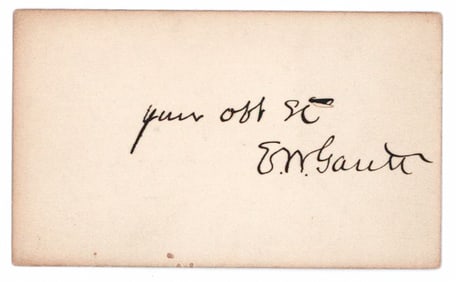 your obt St
E.W. Gantt